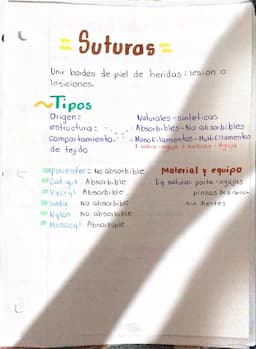 = Suturas =
Unir bordes de piel de heridas: lesión o
Insiciones.
~Tipos
Origen: Naturales - sinteticas
estructura: Absorbibles - No absorbibles
comportamiento. - Monofilamentos - Multifilamentos
de tejido
Poliester: No absorbible
Catgut Absorbible
Vycryl Absorbible
Seda No absorbible
Nylon No absorbible
Monocyl Absorbible
Material y equipo
porta-agujas
pinzas
sin dientes